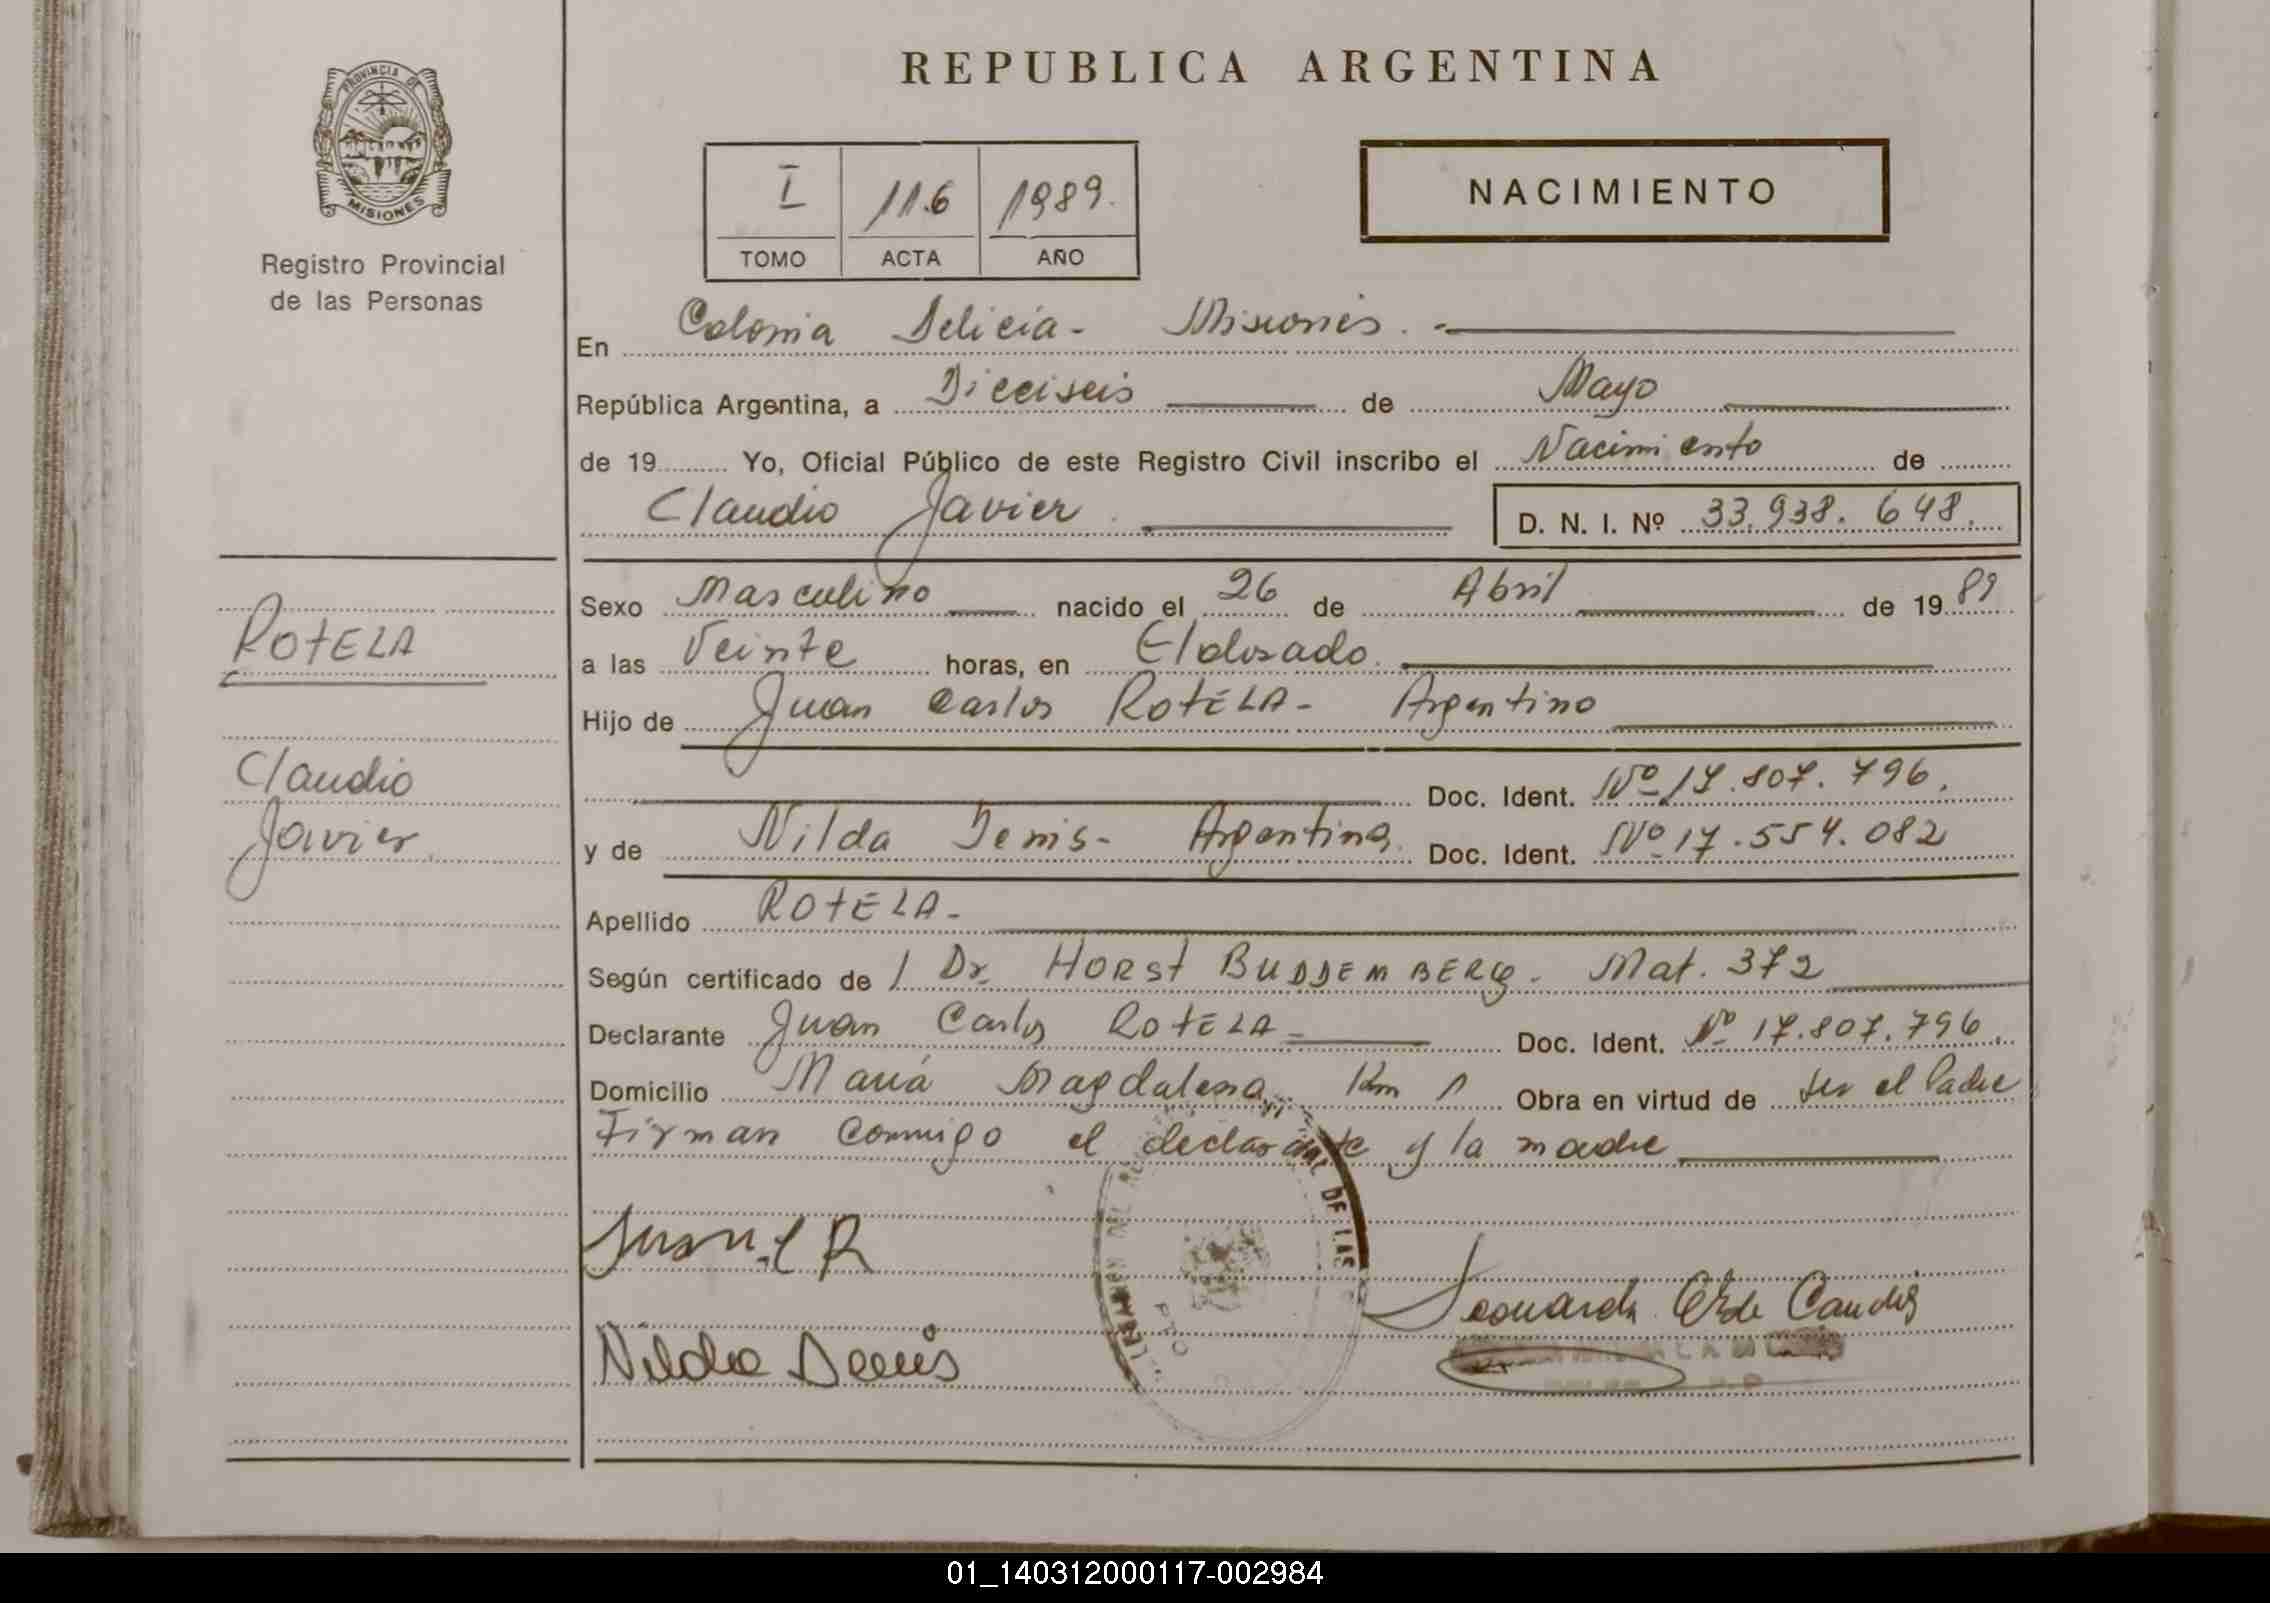 REPUBLICA ARGENTINA
PROVINCIA DE
MISIONES
Registro Provincial
de las Personas
I 116 1989.
TOMO ACTA AÑO
NACIMIENTO
En Colonia Delicia - Misiones.-
República Argentina, a Dieciseis de Mayo
de 19 Yo, Oficial Público de este Registro Civil inscribo el Nacimiento de
Claudio Javier. D. N. I. Nº 33.938.648.
Sexo Masculino nacido el 26 de Abril de 1989
a las Veinte horas, en Eldorado.
Hijo de Juan Carlos ROTELA - Argentino
Doc. Ident. Nº 17.807.796.
y de Nilda Denis - Argentina. Doc. Ident. Nº 17.554.082
Apellido ROTELA -
Según certificado de / Dr. HORST BUDDEMBERG. Mat. 372
Declarante Juan Carlos ROTELA - Doc. Ident. Nº 17.807.796.
Domicilio María Magdalena, Km 1 Obra en virtud de ser el Padre
Firman conmigo el declarante y la madre
DE LAS
Nilda Denis
ROTELA
Claudio
Javier.
01_140312000117-002984